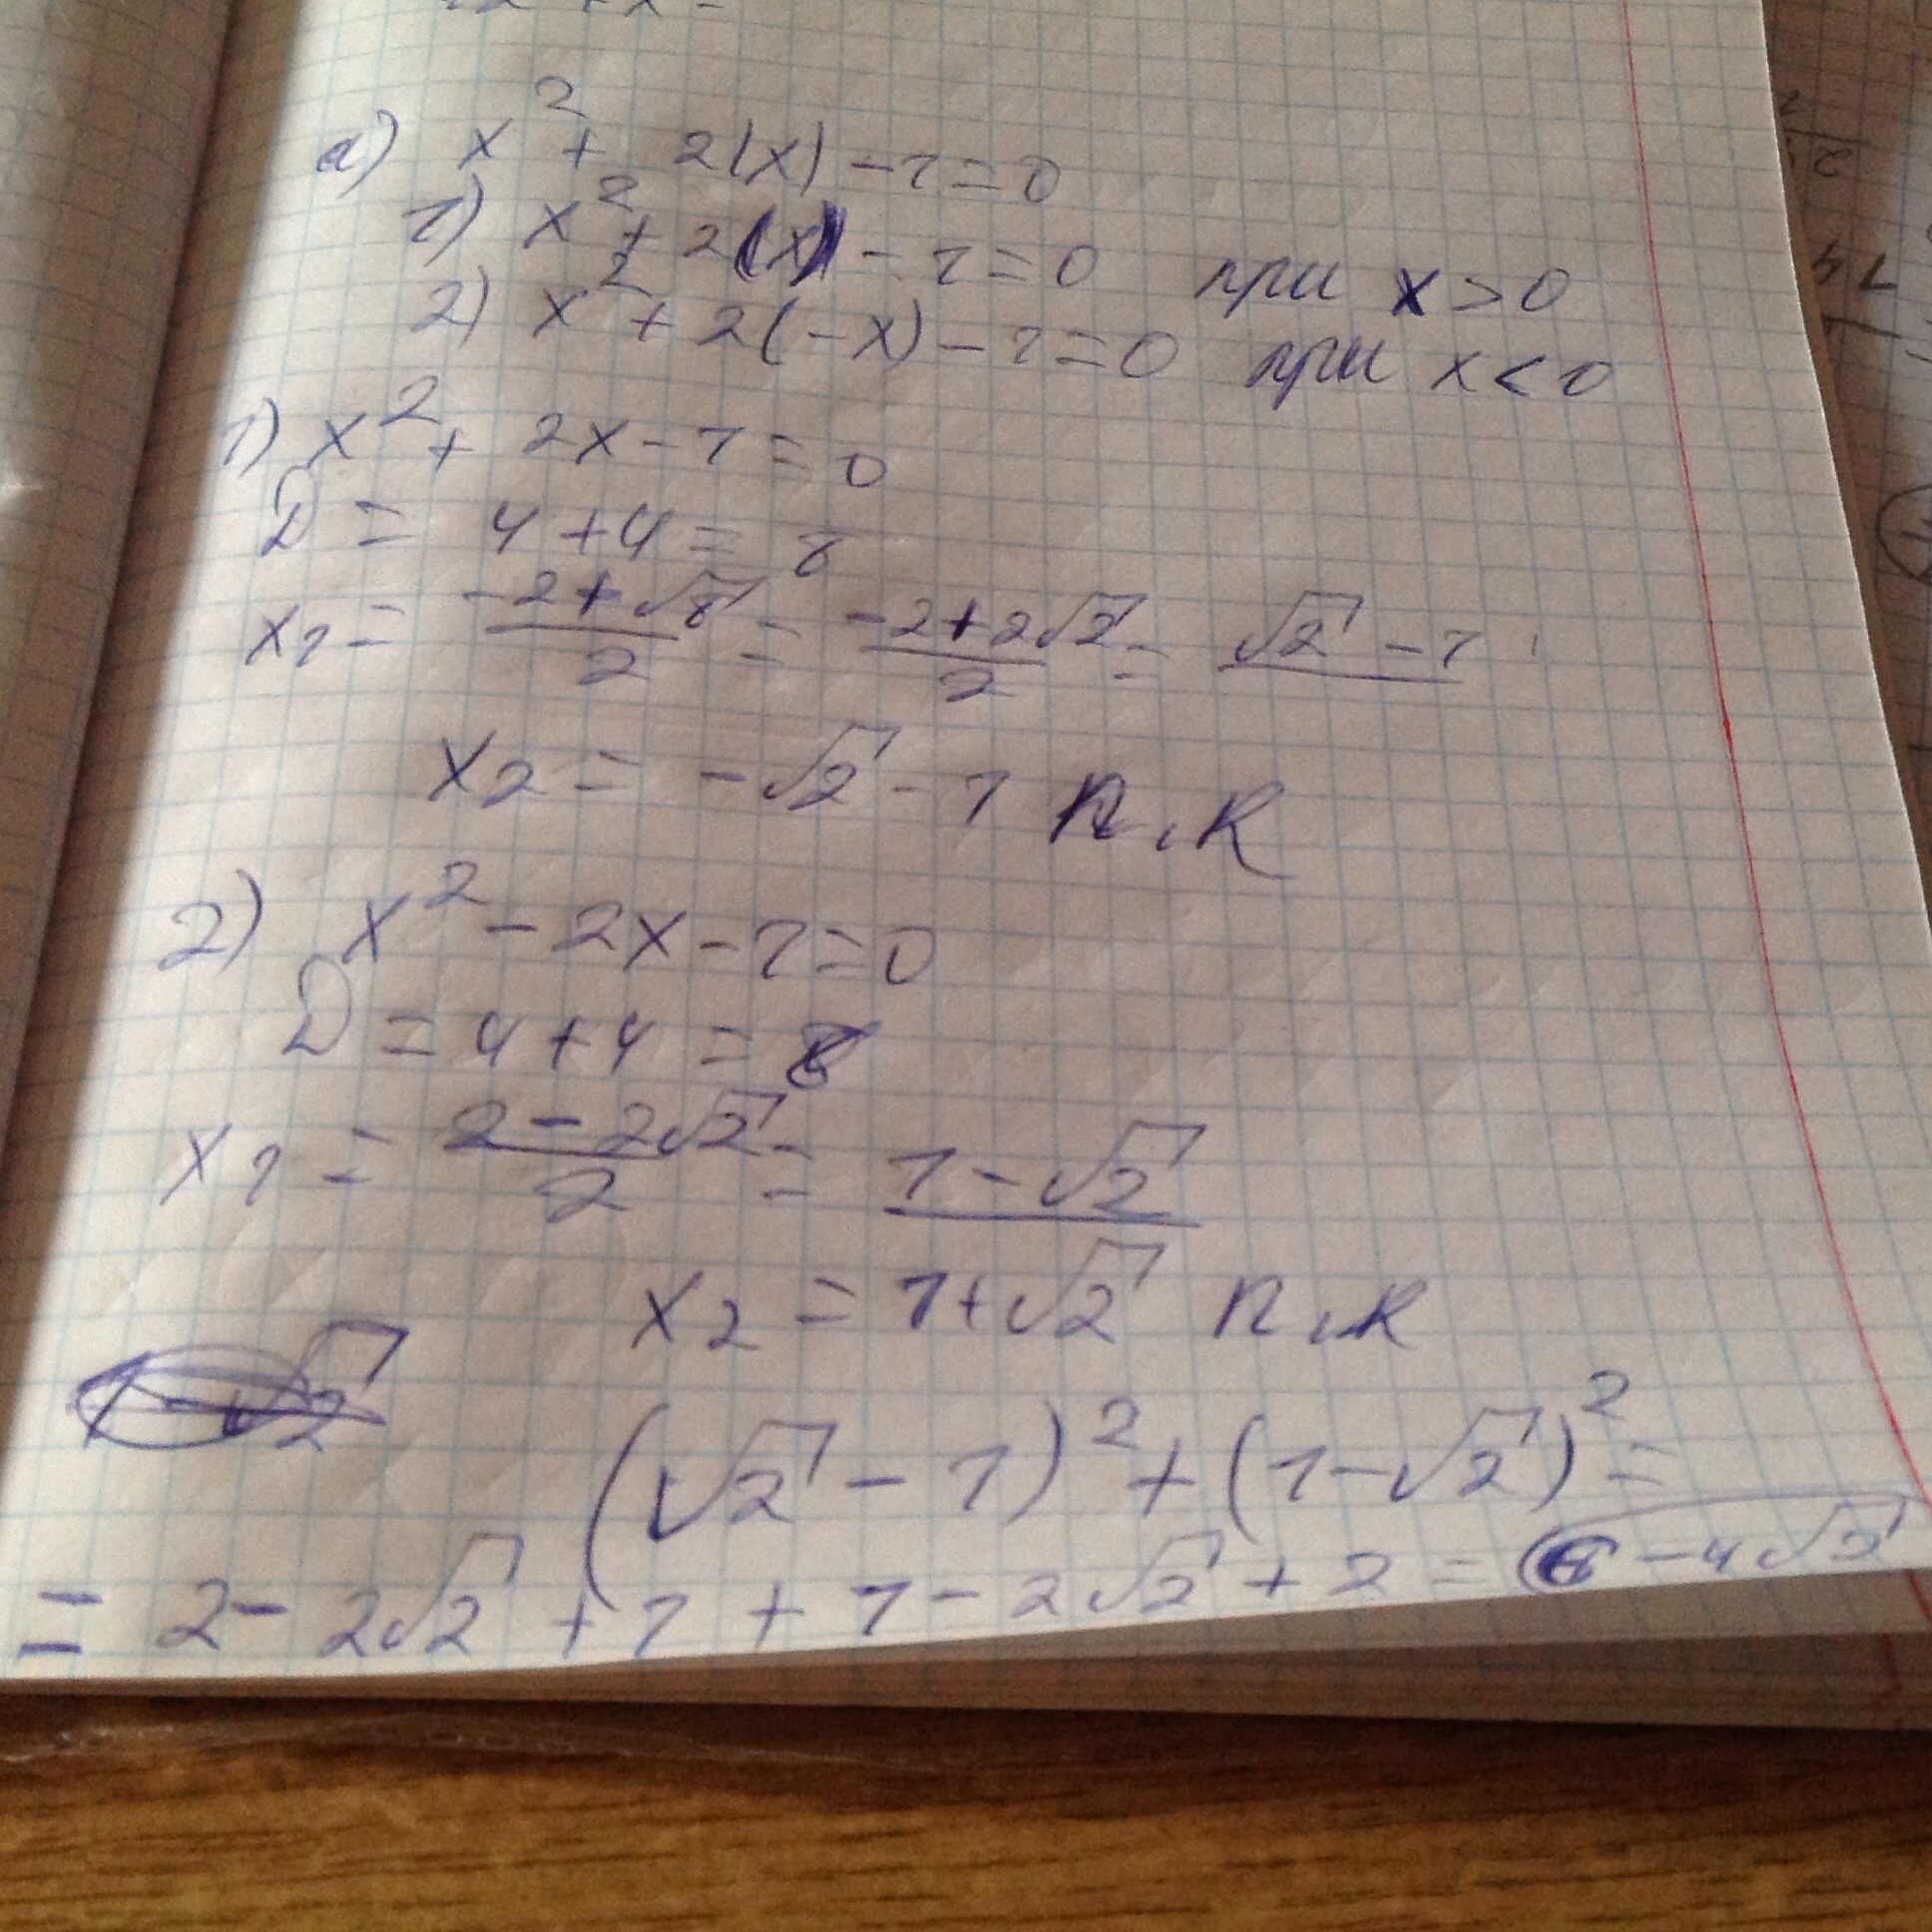 а) x² + 2(x) - 1 = 0
1) x² + 2(x) - 1 = 0 при x > 0
2) x² + 2(-x) - 1 = 0 при x < 0
1) x² + 2x - 1 = 0
D = 4 + 4 = 8
x₁ = (-2+√8)/2 = (-2+2√2)/2 = √2 - 1
x₂ = -√2 - 1 п.к
2) x² - 2x - 1 = 0
D = 4 + 4 = 8
x₁ = (2-2√2)/2 = 1-√2
x₂ = 1+√2 п.к
(√2 - 1)² + (1-√2)² =
= 2 - 2√2 + 1 + 1 - 2√2 + 2 = 6 - 4√2